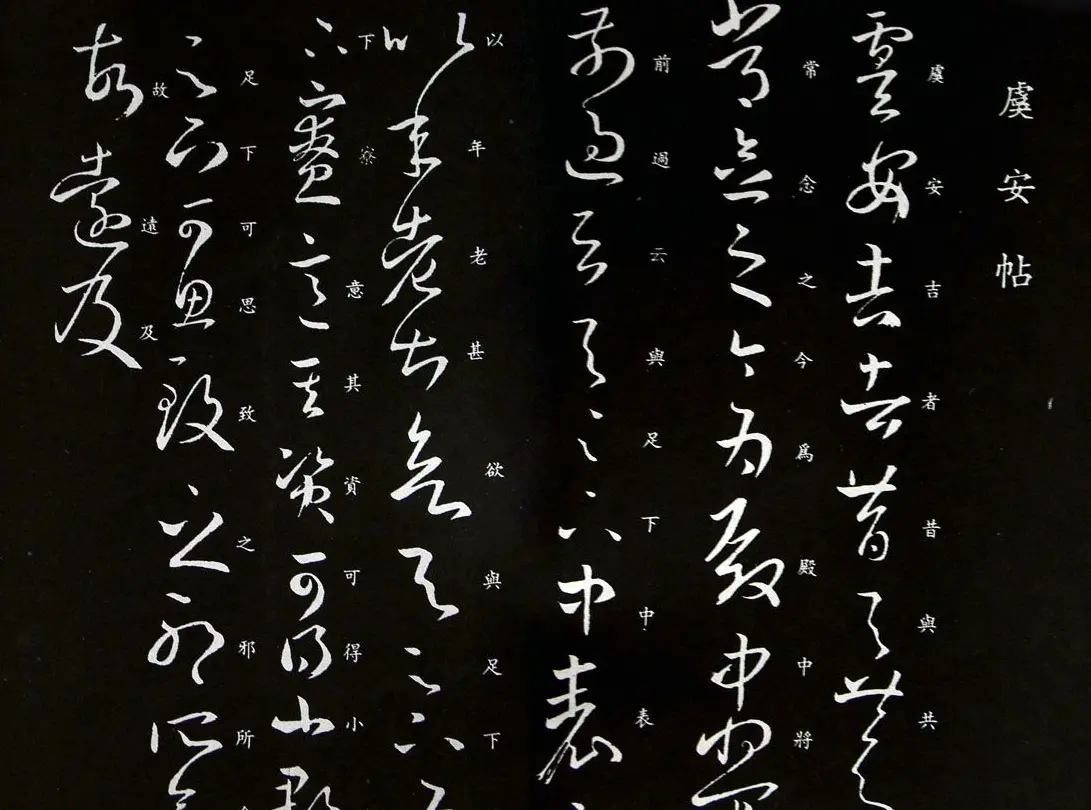 虞安帖
虞安吉者昔與共
常念之今爲殿中將
前過云與足下中表
以年老甚欲與足下
下寮意其資可得小
足下可思致之邪所
故遠及